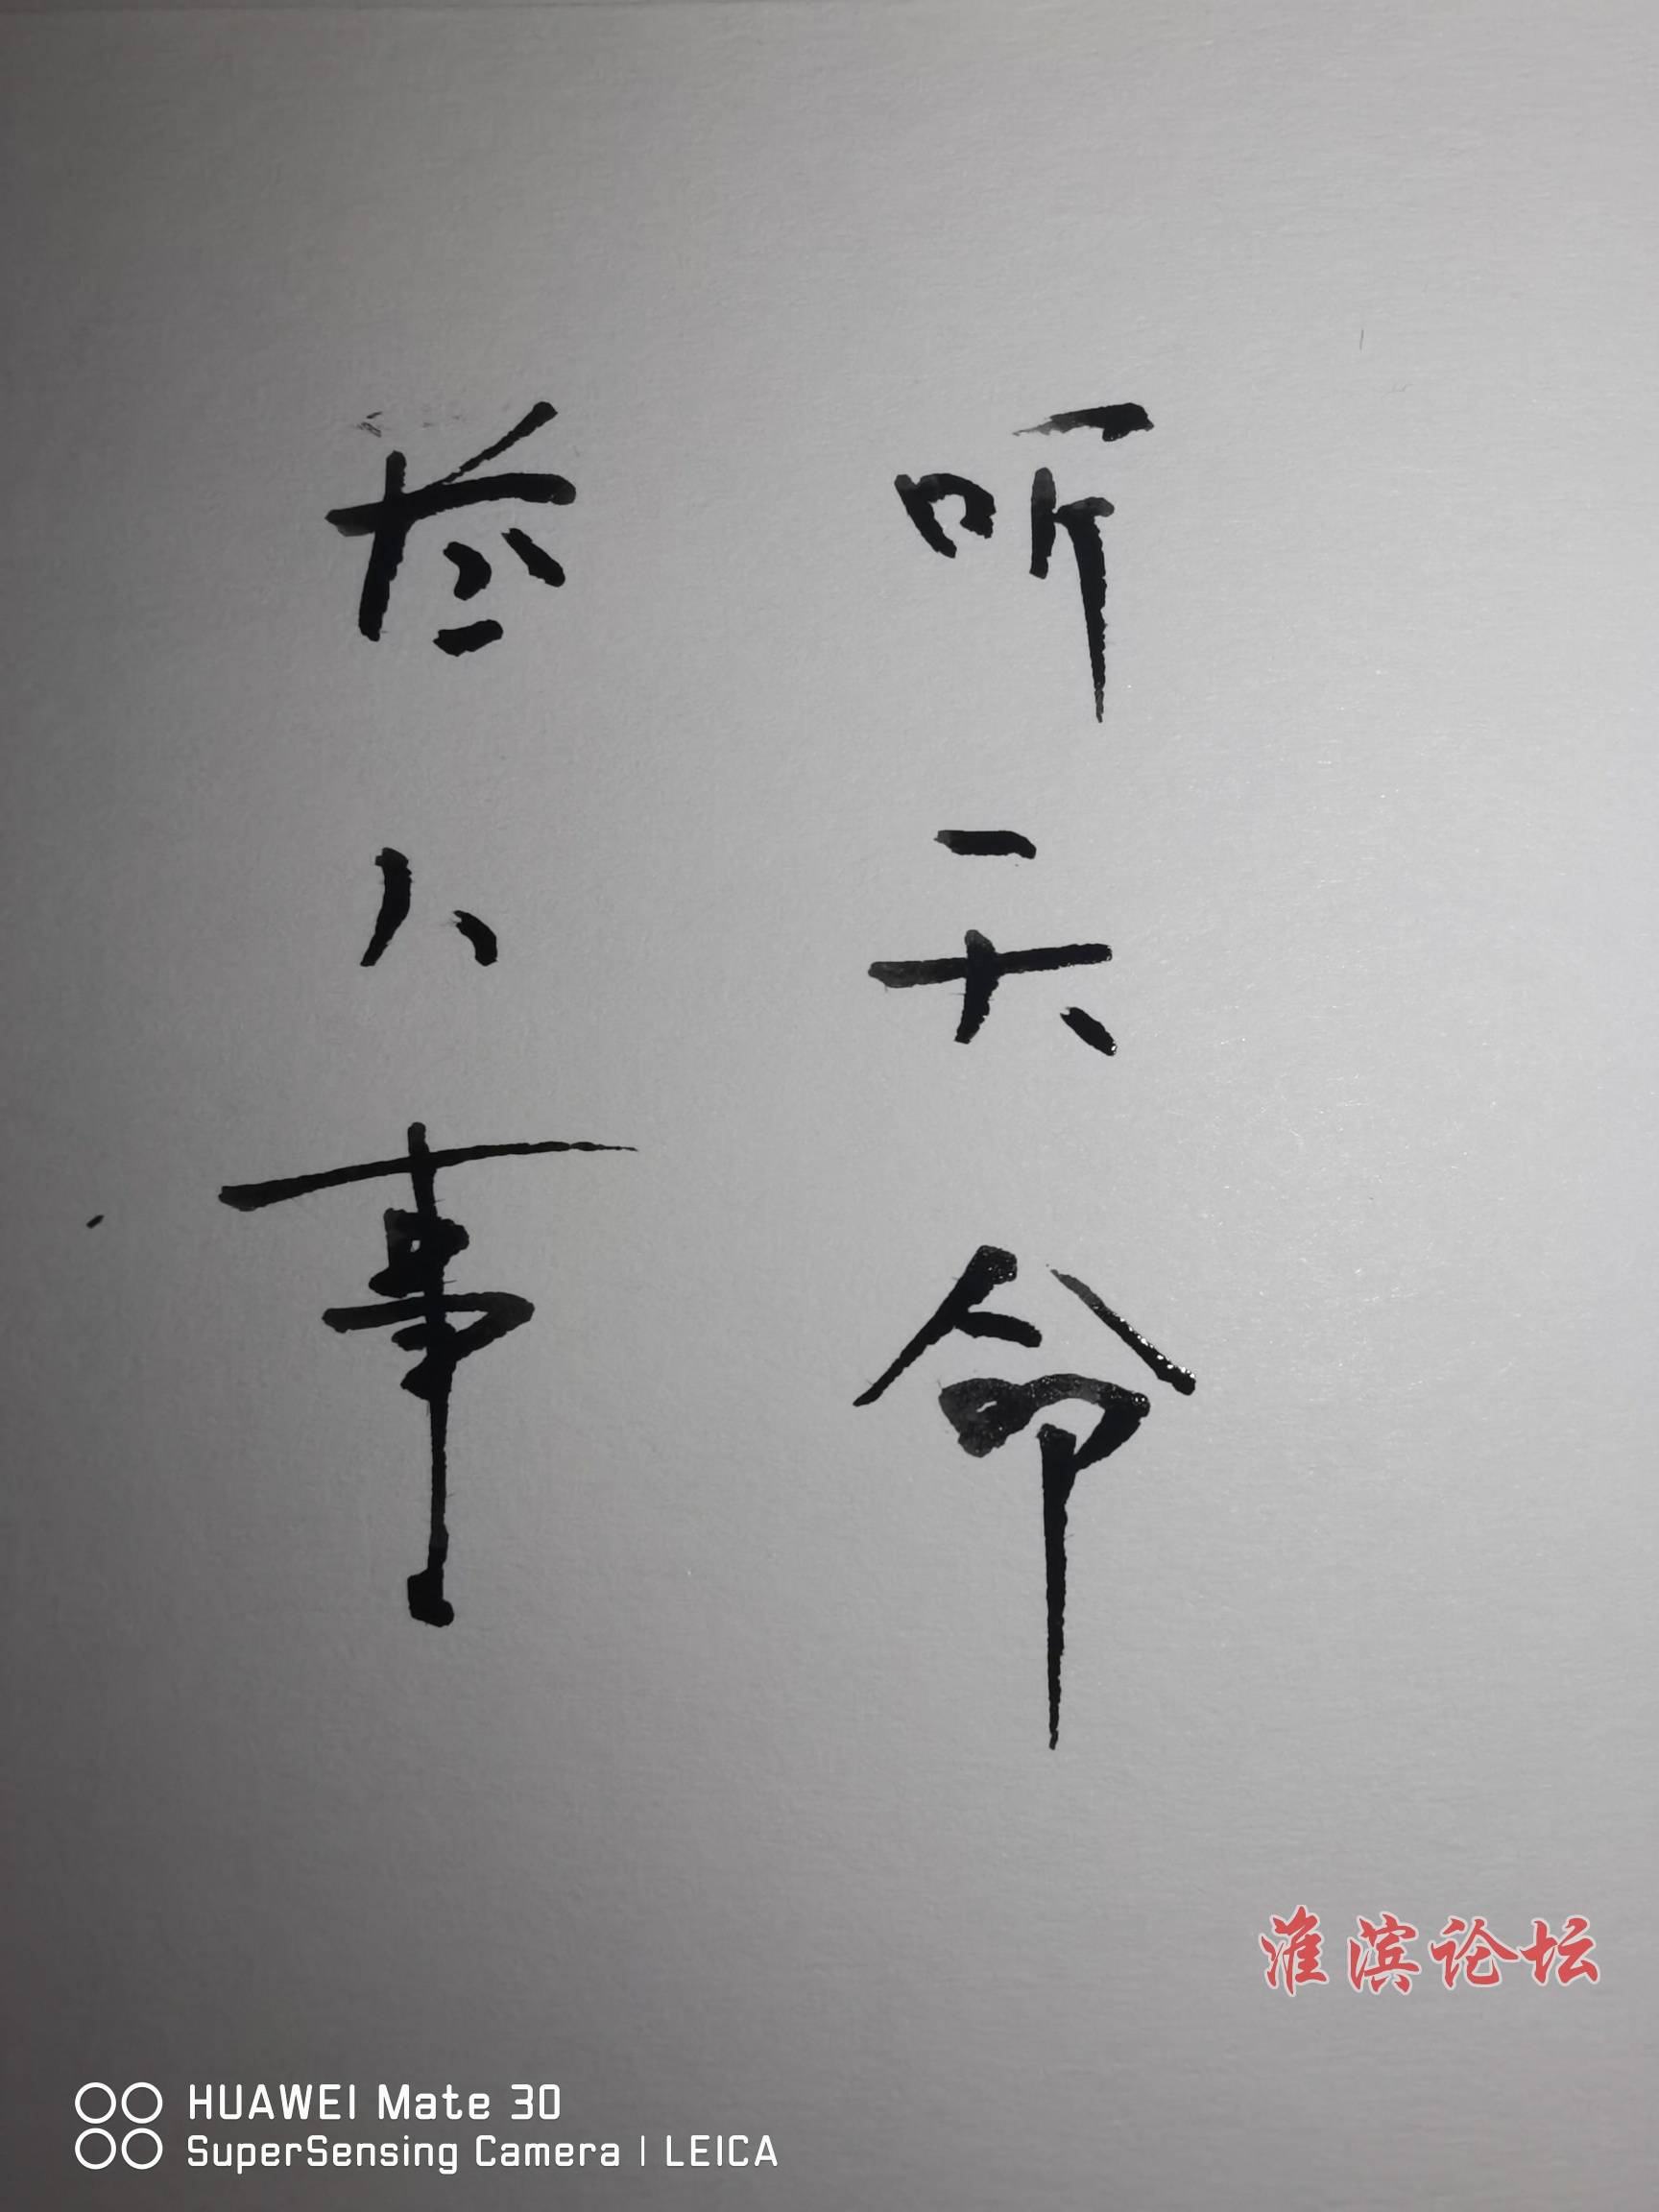 听天命
尽人事
淮滨论坛
HUAWEI Mate 30
SuperSensing Camera | LEICA